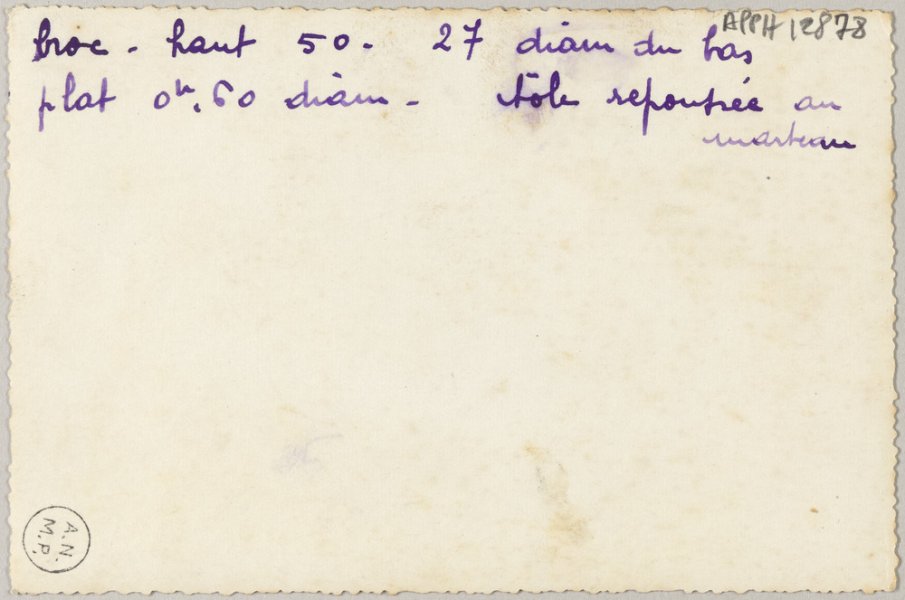 APPH 12878
broc - haut 50 - 27 diam du bas
plat 0m,60 diam - tôle repoussée au
marteau
A.N.
M.P.